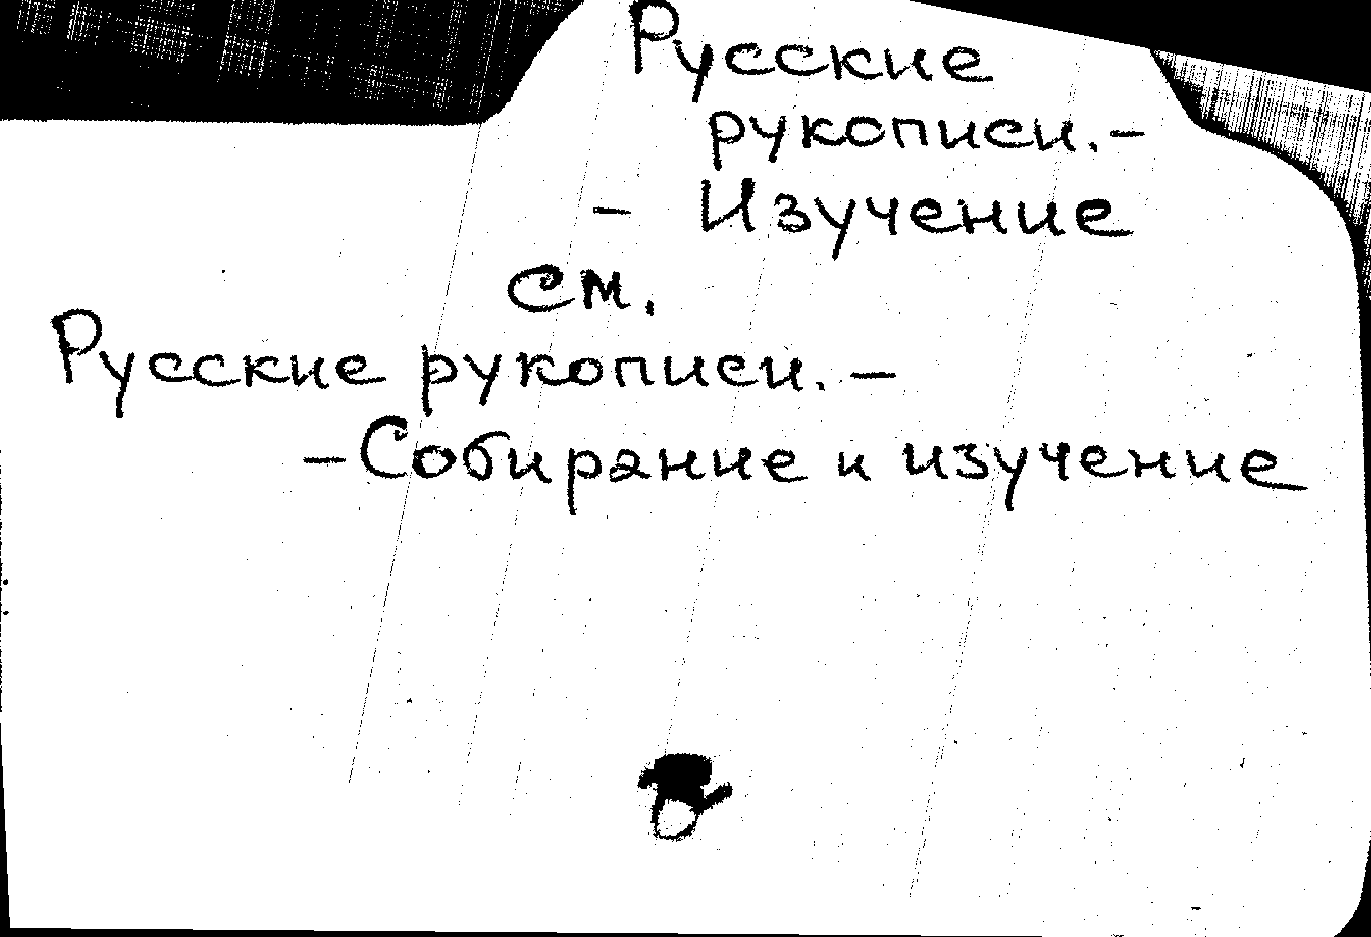 Русские
рукописи.-
- Изучение
см.
Русские рукописи. -
-Собирание и изучение